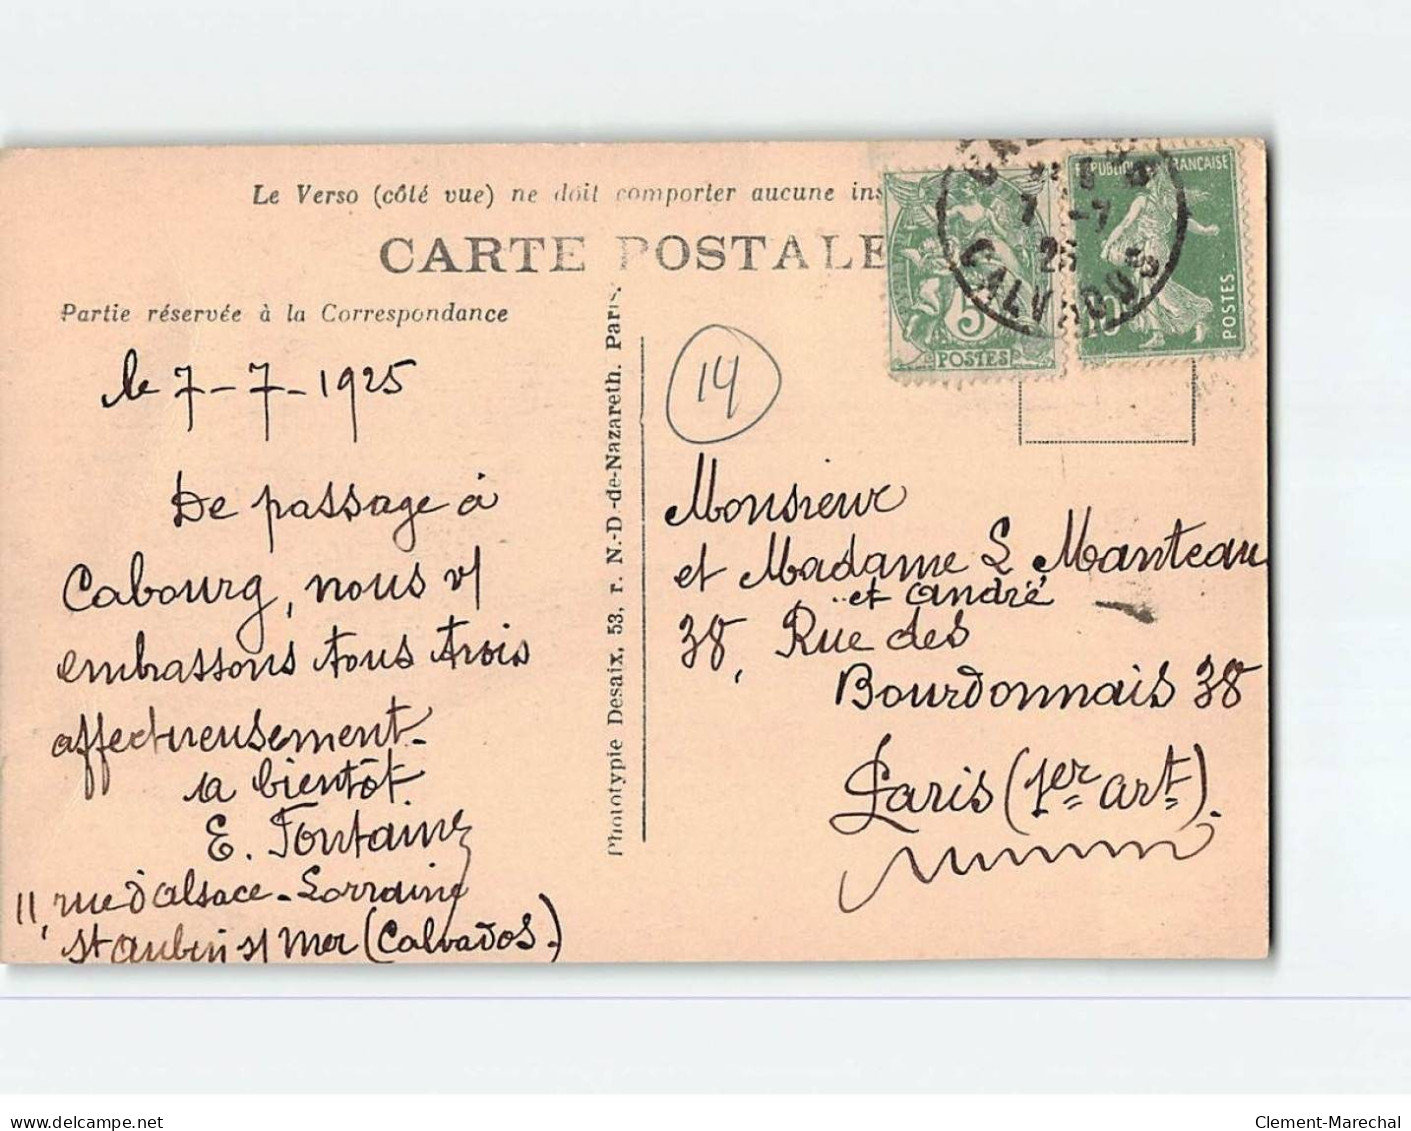 Le Verso (côté vue) ne doit comporter aucune ins
CARTE POSTALE
Partie réservée à la Correspondance
le 7-7-1925
De passage à
Cabourg, nous v/
embrassons tous trois
affectueusement.
à bientôt
E. Fontaine
11, rue d'alsace-Lorraine
St aubin s/ mer (Calvados.)
Phototypie Desaix, 53, r. N.-D.-de-Nazareth. Paris.
14
5
POSTES
REPUBLIQUE FRANÇAISE
10
POSTES
7 -7
25
CALVADOS
Monsieur
et Madame L. Manteau
et andré
38, Rue des
Bourdonnais 38
Paris (1er art).
delcampe.net
Clement-Marechal